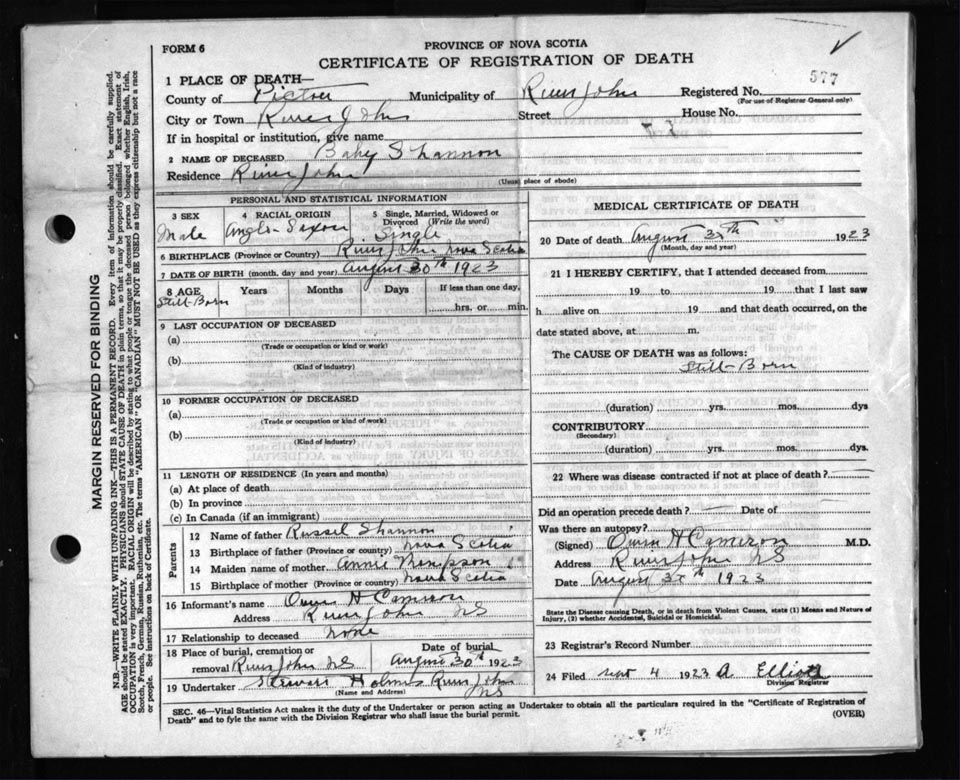 FORM 6
PROVINCE OF NOVA SCOTIA
CERTIFICATE OF REGISTRATION OF DEATH
577
1 PLACE OF DEATH—
County of Pictou Municipality of River John Registered No.
(For use of Registrar General only)
City or Town River John Street House No.
If in hospital or institution, give name
2 NAME OF DECEASED Baby Shannon
Residence River John
(Usual place of abode)
PERSONAL AND STATISTICAL INFORMATION
3 SEX
Male
4 RACIAL ORIGIN
Anglo-Saxon
5 Single, Married, Widowed or Divorced (Write the word)
Single
6 BIRTHPLACE (Province or Country) River John Nova Scotia
7 DATE OF BIRTH (month, day and year) August 30th 1923
8 AGE Years Months Days If less than one day,
Still-Born hrs. or min.
9 LAST OCCUPATION OF DECEASED
(a)
(Trade or occupation or kind or work)
(b)
(Kind of industry)
10 FORMER OCCUPATION OF DECEASED
(a)
(Trade or occupation or kind of work)
(b)
(Kind of industry)
11 LENGTH OF RESIDENCE (In years and months)
(a) At place of death
(b) In province
(c) In Canada (if an immigrant)
Parents
12 Name of father Russel Shannon
13 Birthplace of father (Province or country) Nova Scotia
14 Maiden name of mother Annie Thompson
15 Birthplace of mother (Province or country) Nova Scotia
16 Informant's name Owen H Cameron
Address River John NS
17 Relationship to deceased None
18 Place of burial, cremation or removal River John NS
Date of burial August 30th 1923
19 Undertaker Stewart Holmes River John NS
(Name and Address)
MEDICAL CERTIFICATE OF DEATH
20 Date of death August 30th 1923
(Month, day and year)
21 I HEREBY CERTIFY, that I attended deceased from
19 to 19 that I last saw
h alive on 19 and that death occurred, on the
date stated above, at m.
The CAUSE OF DEATH was as follows:
Still-Born
(duration) yrs. mos. dys
CONTRIBUTORY
(Secondary)
(duration) yrs. mos. dys.
22 Where was disease contracted if not at place of death?
Did an operation precede death? Date of
Was there an autopsy?
(Signed) Owen H Cameron M.D.
Address River John NS
Date August 30th 1923
State the Disease causing Death, or in death from Violent Causes, state (1) Means and Nature of
Injury, (2) whether Accidental, Suicidal or Homicidal.
23 Registrar's Record Number
24 Filed Sept 4 1923 A Elliott
Division Registrar
SEC. 46—Vital Statistics Act makes it the duty of the Undertaker or person acting as Undertaker to obtain all the particulars required in the "Certificate of Registration of
Death" and to fyle the same with the Division Registrar who shall issue the burial permit.
(OVER)
MARGIN RESERVED FOR BINDING
N.B.—WRITE PLAINLY WITH UNFADING INK—THIS IS A PERMANENT RECORD. Every item of information should be carefully supplied.
AGE should be stated EXACTLY. PHYSICIANS should STATE CAUSE OF DEATH in plain terms, so that it may be properly classified. Exact statement of
OCCUPATION is very important. RACIAL ORIGIN will be described by stating to what people or tongue the deceased person belonged whether English, Irish,
Scotch, French, German, Russian, Ruthenian, etc. The terms "AMERICAN" OR "CANADIAN" MUST NOT BE USED as they express citizenship but not a race
or people. See instructions on back of Certificate.